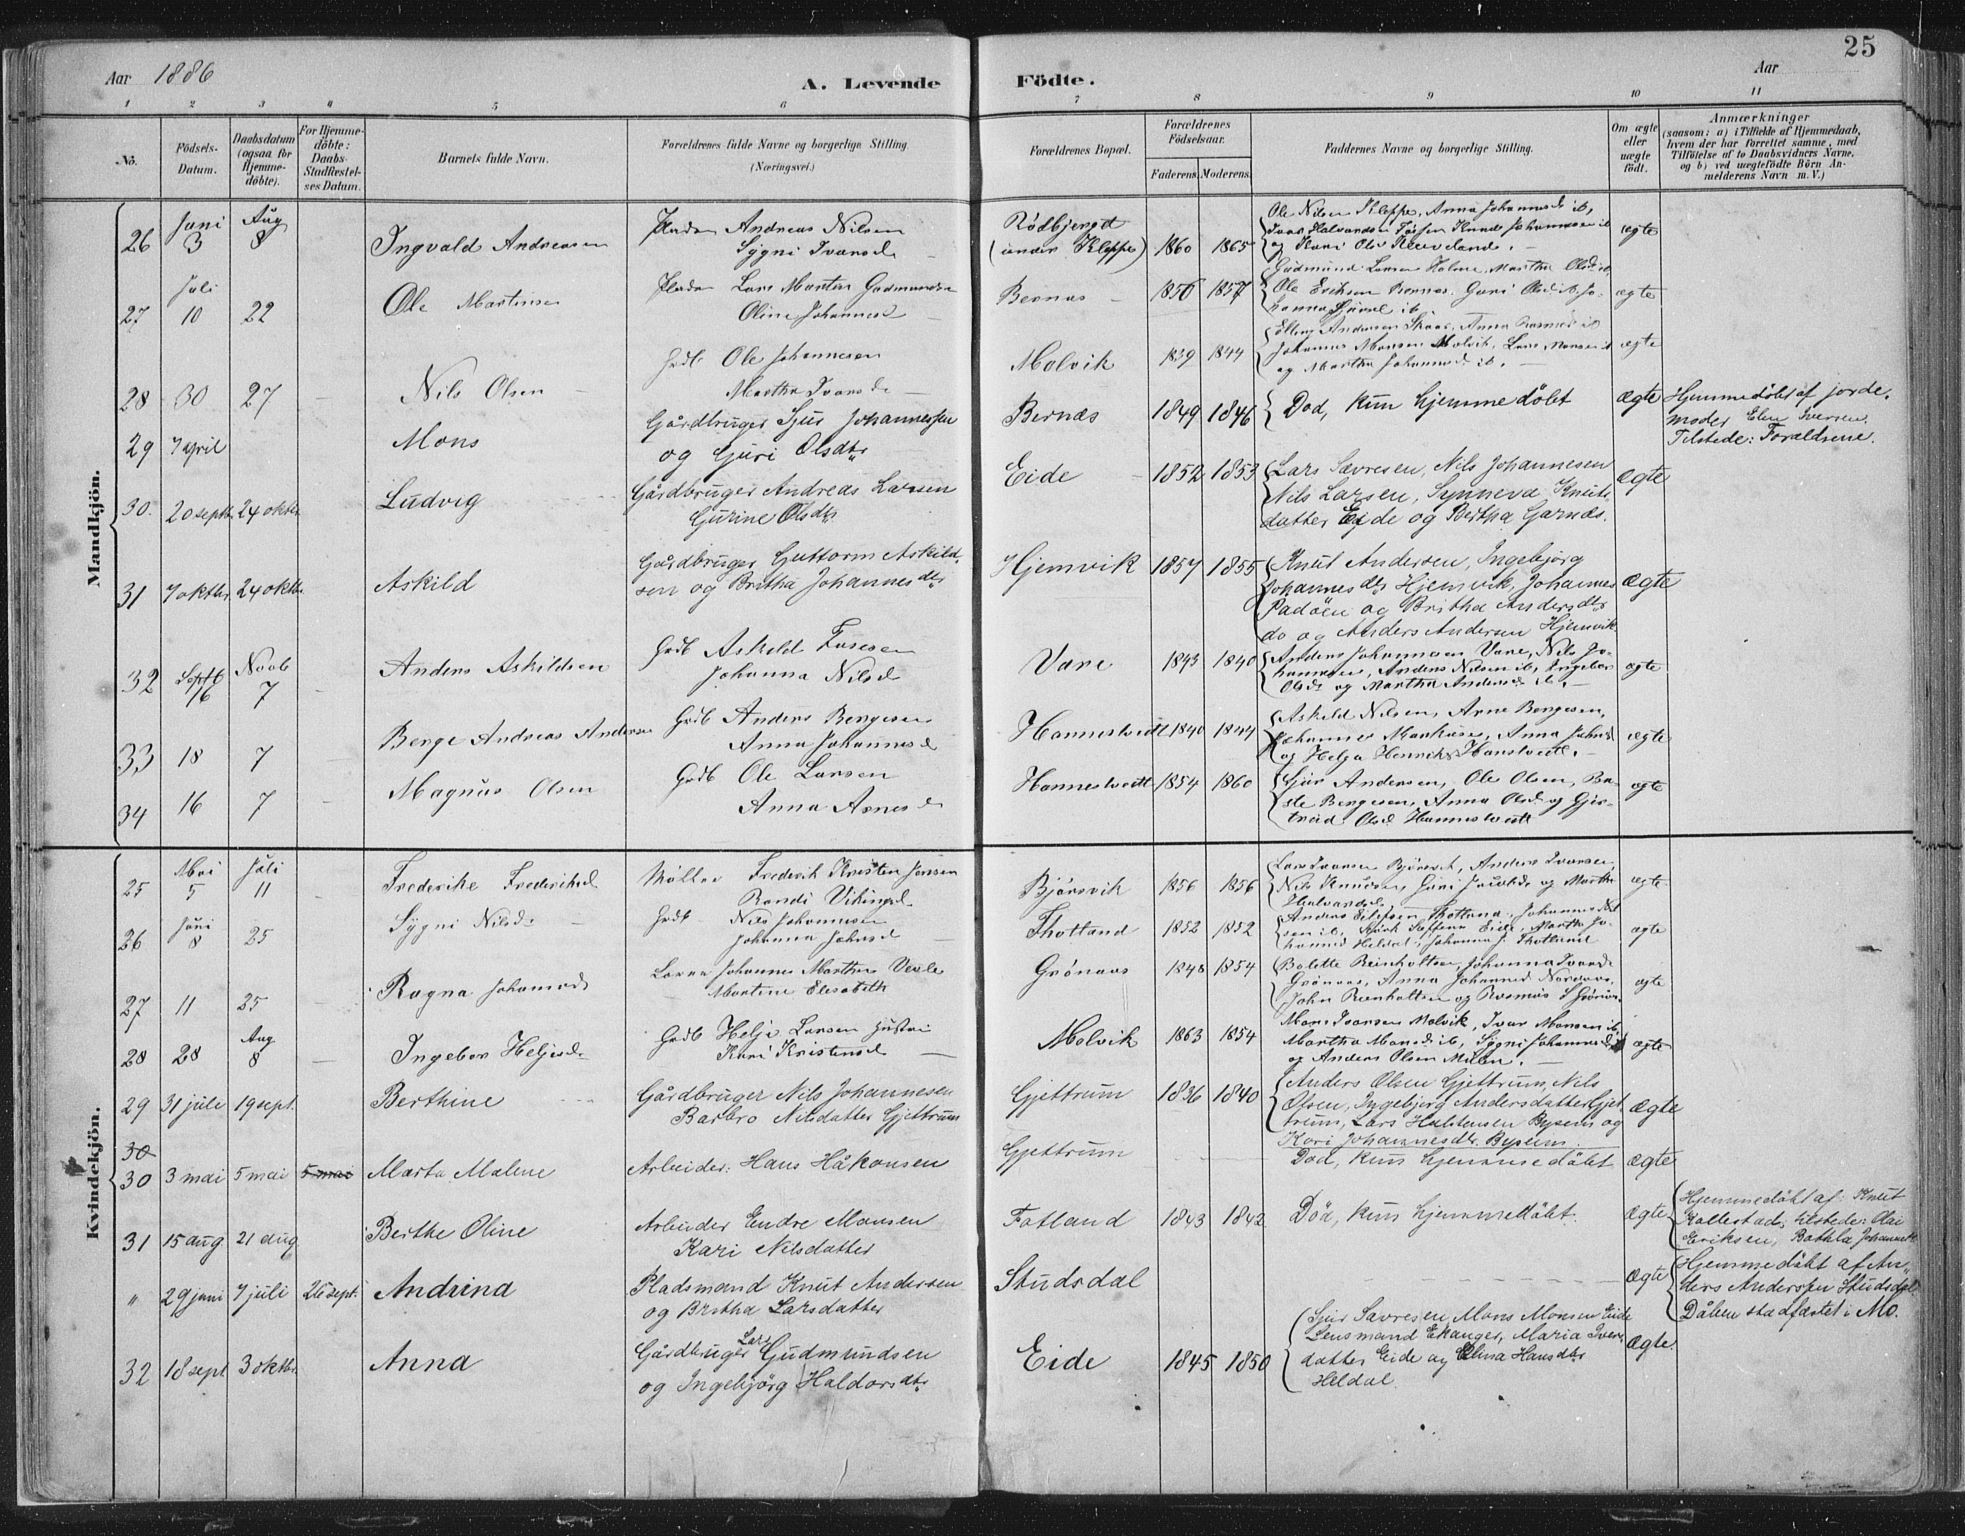 25
Aar 1886
A. Levende
Födte.
Aar
1 2 3 4 5 6 7 8 9 10 11
No.
Födsels-
Datum.
Daabsdatum
(ogsaa for
Hjemme-
döbte).
For Hjemme-
döbte:
Daabs-
Stadfæstel-
ses Datum.
Barnets fulde Navn.
Forældrenes fulde Navne og borgerlige Stilling
(Næringsvei.)
Forældrenes Bopæl.
Forældrenes
Födselsaar.
Faderens. Moderens.
Faddernes Navne og borgerlige Stilling.
Om ægte
eller
uægte
födt.
Anmærkninger
(saasom: a) i Tilfælde af Hjemmedaab,
hvem der har forrettet samme, med
Tilföielse af to Daabsvidners Navne,
og b) ved uægtefödte Börn An-
melderens Navn m. V.)
Mandkjön.
26 Juni 3 Aug 8 Ingvald Andreasen
Andreas Nilsen
Sygni Ivarsd
(under Kleppe) 1860 1865
Ole Nilsen Kleppe, Anna Johannesd ib,
ægte
27 Juli 10 22 Ole Martinsen
Lars Martin Gudmundsen
Oline Johannesd
Bernæs 1856 1857
Gudmund Larsen Holme, Martha Olsd ib
Ole Eriksen Bernæs, Guri Olsd ib, Jo-
ægte
28 30 27 Nils Olsen
Gdb Ole Johannesen
Martha Ivarsd
Molvik 1839 1844
Johannes Monsen Molvik, Lars Monsen ib
og Martha Johannesd ib.
ægte
29 7 april Mons
Gårdbruger Sjur Johannessen
og Guri Olsdtr
Bernæs 1849 1846 Död, kun hjemmedöbt ægte
Hjemmedöbt af jorde-
moder Elen Iversen.
Tilstede: Forældrene.
30. 20 septbr 24 oktbr. Ludvig
Gårdbruger Andreas Larsen
Gurine Olsdtr
Eide 1852 1853
Lars Sævresen, Nils Johannesen
Nils Larsen, Synneva Knuts
datter Eide og Bertha Garnæs.
ægte
31 7 oktbr 24 oktbr. Askild
Gårdbruger Guttorm Askild-
sen og Britha Johannesdtr
Hjemvik 1857 1855
Knut Andersen, Ingebjörg
Johannesdtr Hjemvik, Johannes
Padöen og Britha Andersdtr
do og Anders Andersen Hjemvik
ægte
32 Septb 16 Novb 7 Anders Askildsen
Gdb Askild
Johanna Nilsd
Vare 1843 1840
Anders Johannesen Vare, Nils Jo-
hannesen, Anders Nilsen ib, Ingebor
Olsd og Martha Andersd ib.
ægte
33 18 7 Berge Andreas Andersen
Gdb Anders Bergesen
Anna Johannesd
Hannestvedt 1840 1844
Askild Nilsen, Arne Bergesen,
Johannes Markusen, Anna Johnsd
og Helga Henriksd Hanstvedt.
ægte
34 16 7 Magnus Olsen
Gdb Ole Larsen
Anna Arnesd
Hannestvedt 1854 1860
Sjur Andersen, Ole Olsen,
Bergesen, Anna Olsd og Gjer-
trud Olsd Hannestvedt
ægte
Kvindekjön.
25 Mai 5 Juli 11 Frederike Frederiksd
Möller Frederik Kristen Jensen
Randi Vikingsd
Bjørsvik 1856 1856
Lars Ivarsen Bjørsvik, Anders Ivarsen,
Nils Knudsen, Guri Jacobsd og Martha
Halvorsd
ægte
26 Juni 8 25 Sygni Nilsd
Gdb Nils Johannesen
Johanna Johnsd
Thotland 1852 1852
Anders Eilefsen Thotland, Johannes
sen ib, Steffens Eide, Martha Jo-
hannesd Heldal, Johanna J. Thotland
ægte
27 11 25 Ragna Johannesd
Johannes Marthin Verle
Martine Elisabeth
Grønaas 1848 1854
Bolette Reinholtsen, Johanna Ivarsd
Grønaas, Anna Johannesd
John Reinholtsen og Rasmus S Grønaas
ægte
28 28 Aug 8 Ingebor Heljesd
Gdb Helje Larsen
Kari Kristensd
Molvik 1863 1854
Mons Ivarsen Molvik, Ivar Monsen ib
Martha Monsd ib, Sygni Johannesd
og Anders Olsen
ægte
29 31 juli 19 sept. Berthine
Gårdbruger Nils Johannesen
Barbro Nilsdatter Gjettrum
Gjettrum 1836 1840
Anders Olsen Gjettrum, Nils
Olsen, Ingebjörg Andersdatter Gjet
trum, Lars Halstensen Byseim og
Kari Johannesdtr. Byseim.
ægte
30
30 3 mai 5 mai 5 mai Marta Malene
Arbeider: Hans Håkonsen
Gjettrum
Död, kun hjemmedöbt ægte
31 15 aug 21 aug Berthe Oline
Arbeider Endre Monsen
Kari Nilsdatter
Fotland 1843 1842
Död, kun hjemmedöbt. ægte
Hjemmedöbt af: Knut
Kallestad; tilstede: Olai
Eriksen, Bothla Johannesdtr
" 29 juni 7 juli 26 sept. Andrina
Pladsmand Knut Andersen
og Britha Larsdatter
Studsdal
ægte
Hjemmedöbt af An-
ders Andersen Studsdal
Dåben stadfæstet i Mo.
32 18 sept 3 oktbr. Anna
Gårdbruger Lars Gudmundsen
og Ingebjörg Haldorsdtr
Eide 1845 1850
Sjur Sævresen, Mons Monsen Eide
Lensmand Ekanger, Maria Ivers
datter Eide og Elina Hansdtr
Heldal.
ægte.